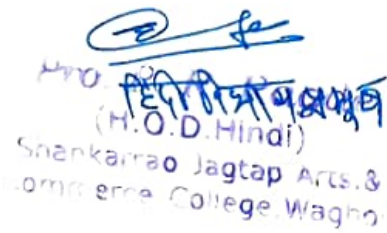 हिंदी विभाग प्रमुख
(H.O.D. Hindi)
Shankarrao Jagtap Arts &
Commerce College, Wagho